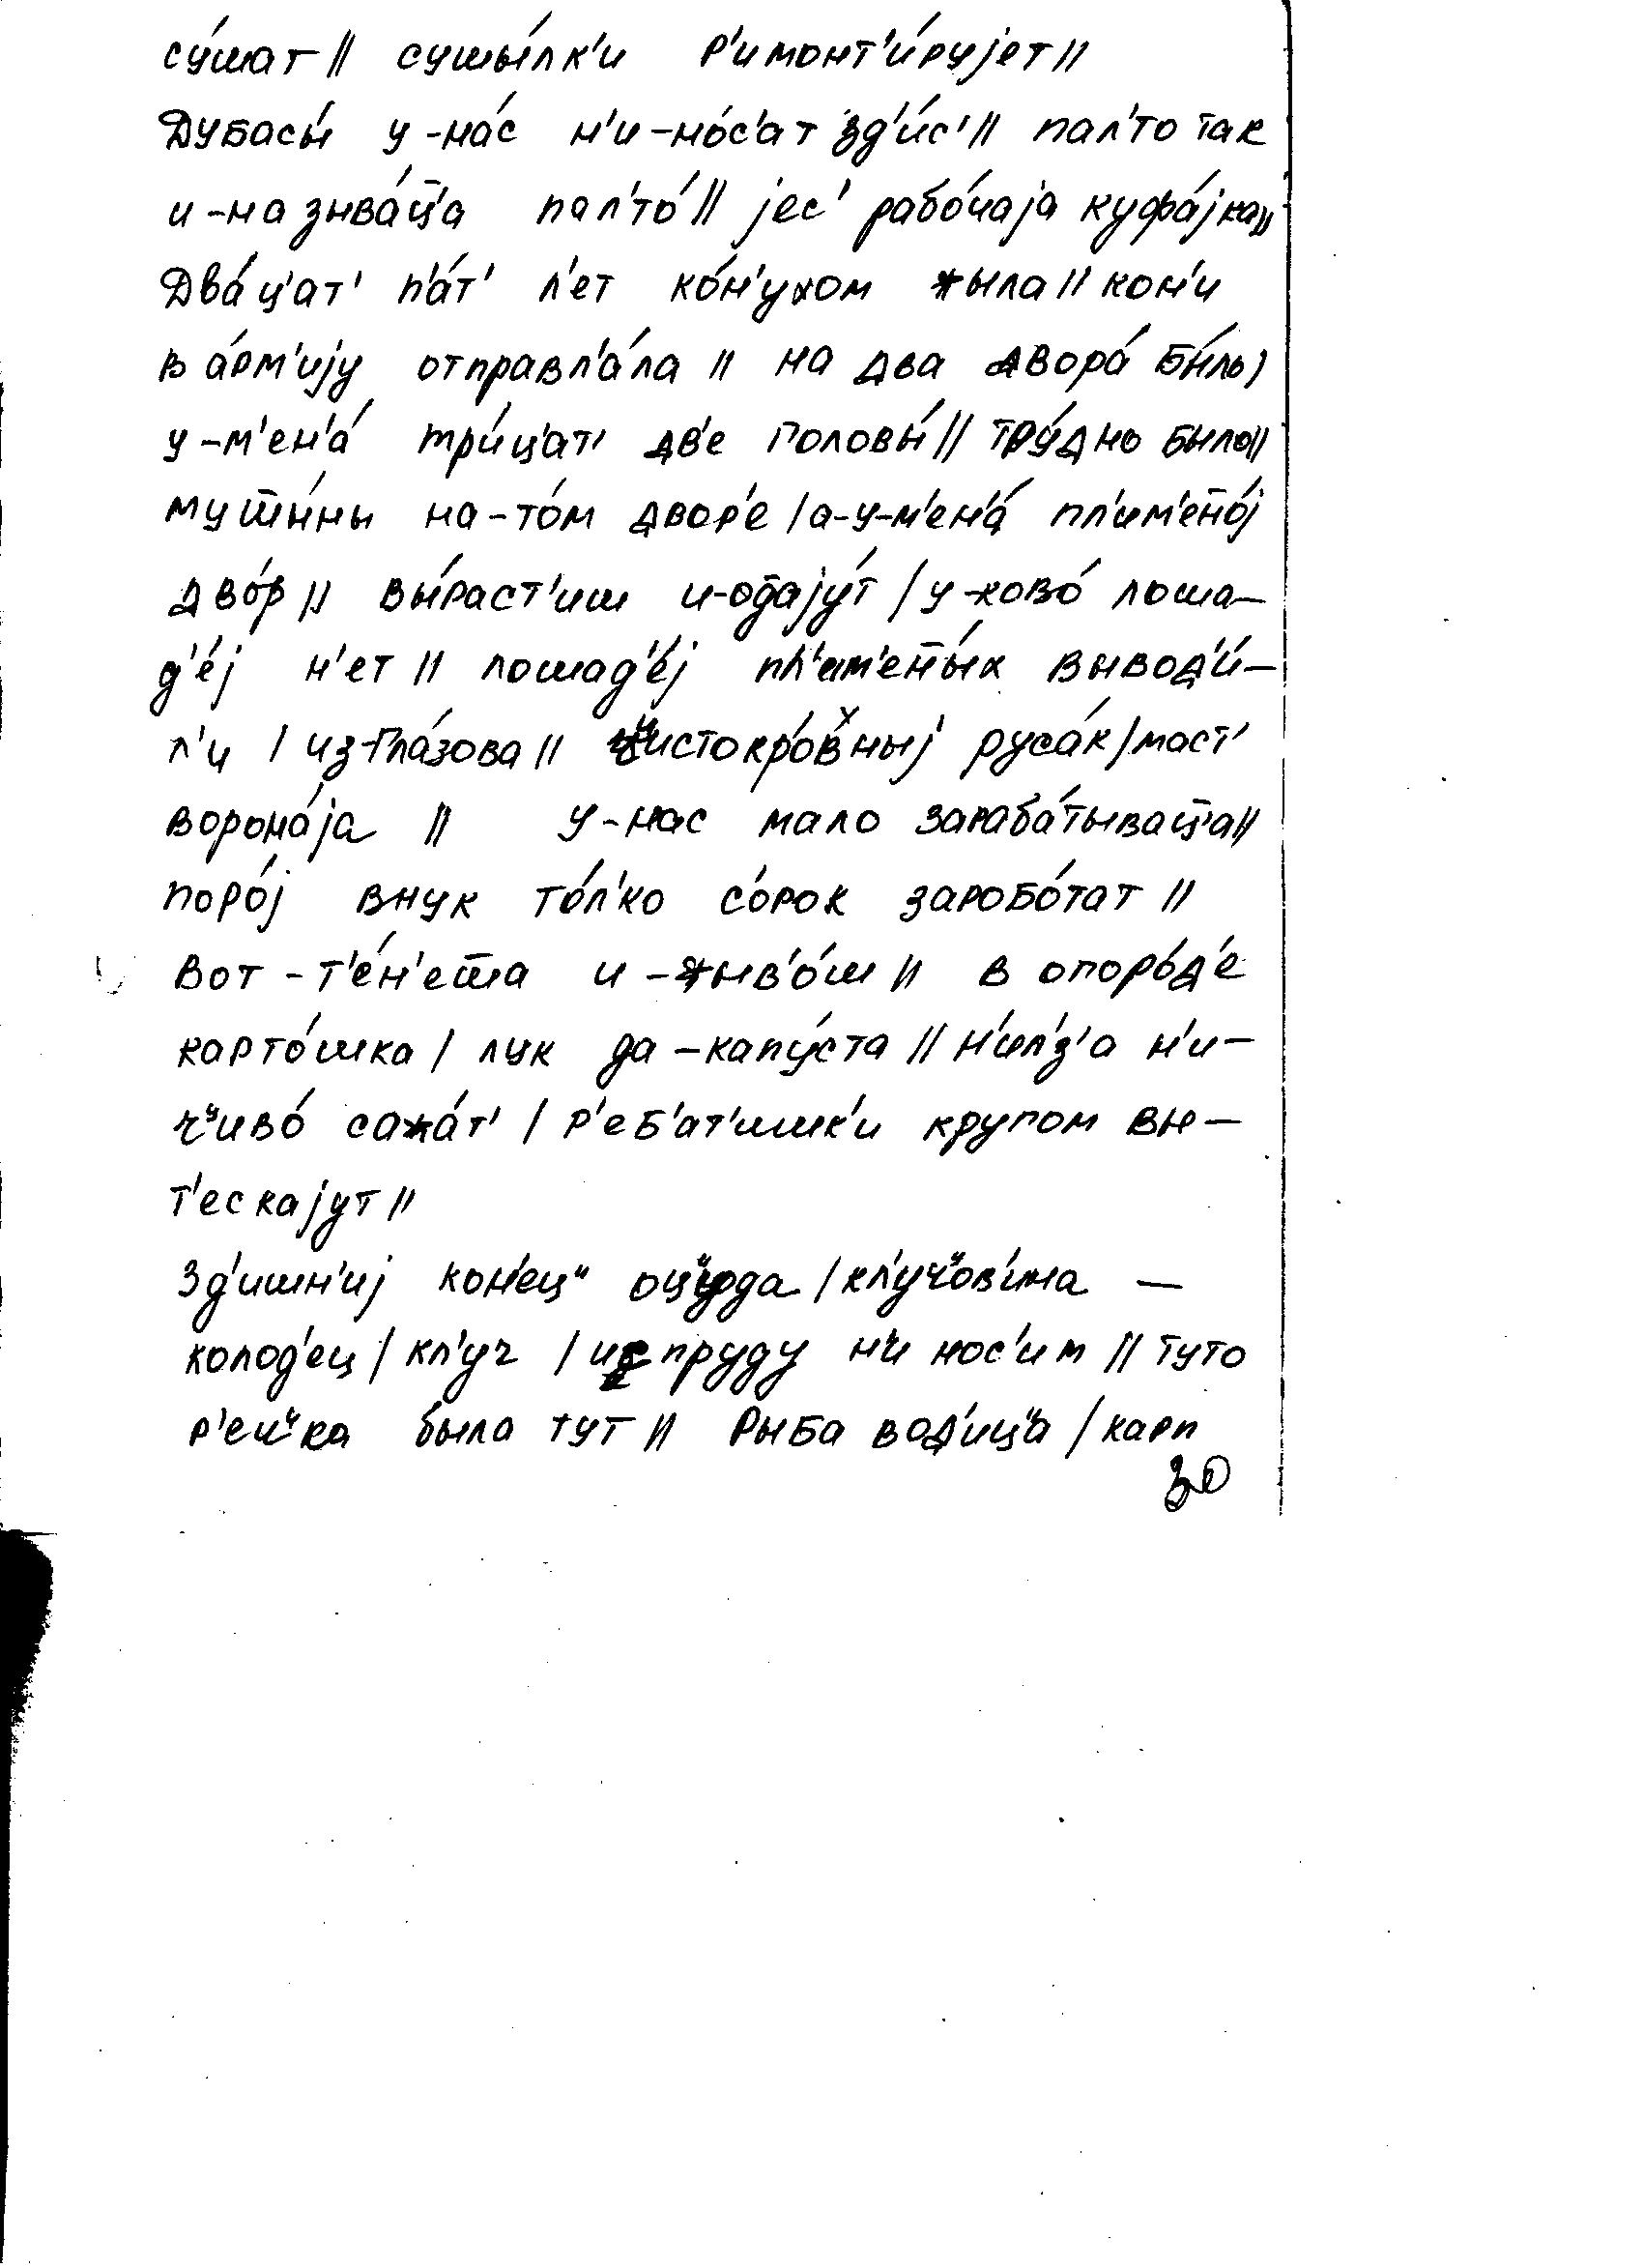 су́шат // сушы́лк'и р'имонт'и́рујет //
Дубасы́ у-на́с н'и-но́с'ат зд'и́с' // пал'то так
и-называ́ц̄'а пал'то́ // јес' рабо́чаја куфа́јка //
Два́ц'ат' п'а́т' л'ет ко́н'ухом жыла // кон'и
в а́рм'ију отправл'а́ла // на два двора́ бы́ло /
у-м'ен'а́ три́ц'ат' дв'е головы́ // тру́дно было //
муш̄и́ны на-то́м двор'е / а-у-м'ен'а́ пл'им'ен̄о́ј
дво́р // вы́раст'иш и-од̄ају́т / у-ково́ лоша-
д'е́ј н'ет // лошад'е́ј пл'им'ен̄ы́х вывод'и́-
л'и / из-Гла́зова // чистокро́вныј руса́к / маст'
ворона́ја // у-нас мало зараба́тывац̄'а //
поро́ј внук то́л'ко со́рок заробо́тат //
Вот-т'е́н'еш̄а и-жыв'о́ш // в огоро́д'е
карто́шка / лук да-капу́ста // н'ил'з'а н'и-
ч'иво́ сажа́т' / р'еб'ат'ишк'и кругом вы-
т'ескајут //
Зд'ишн'иј кон'ец" оц"уда / кл'уч"ов'ина —
колод'ец / кл'уч / ис пруду н'и нос'им // туто
р'еч"ка была тут // Рыба вод'иц'а / карп
30